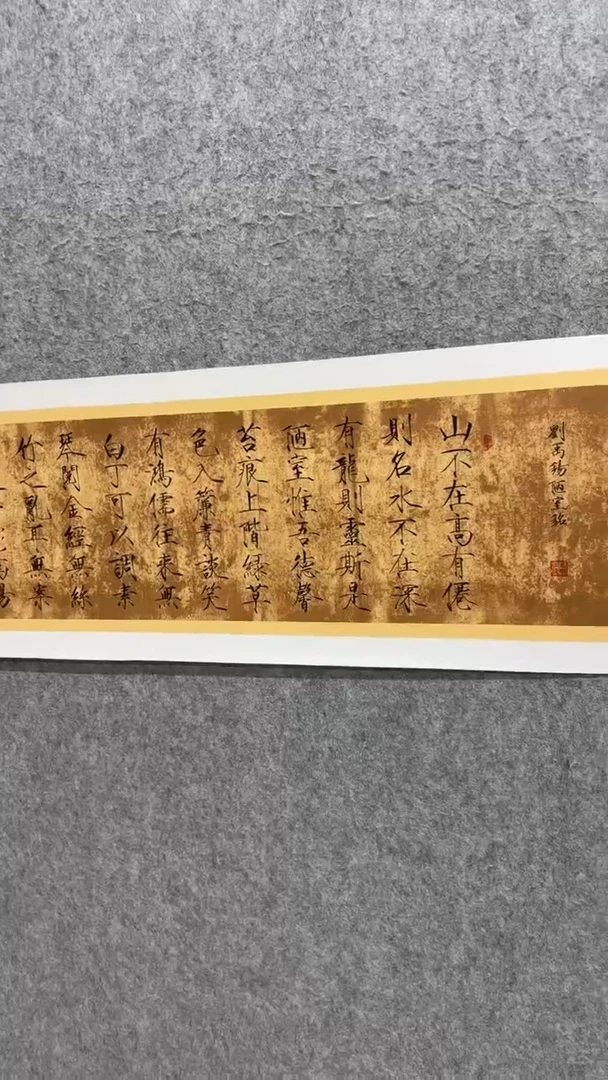 劉禹錫陋室銘
山不在髙有僊
則名水不在深
有龍則靈斯是
陋室惟吾德馨
苔痕上階緑草
色入簾青談笑
有鴻儒往来無
白丁可以調素
琴閱金經無絲
竹之亂耳無案